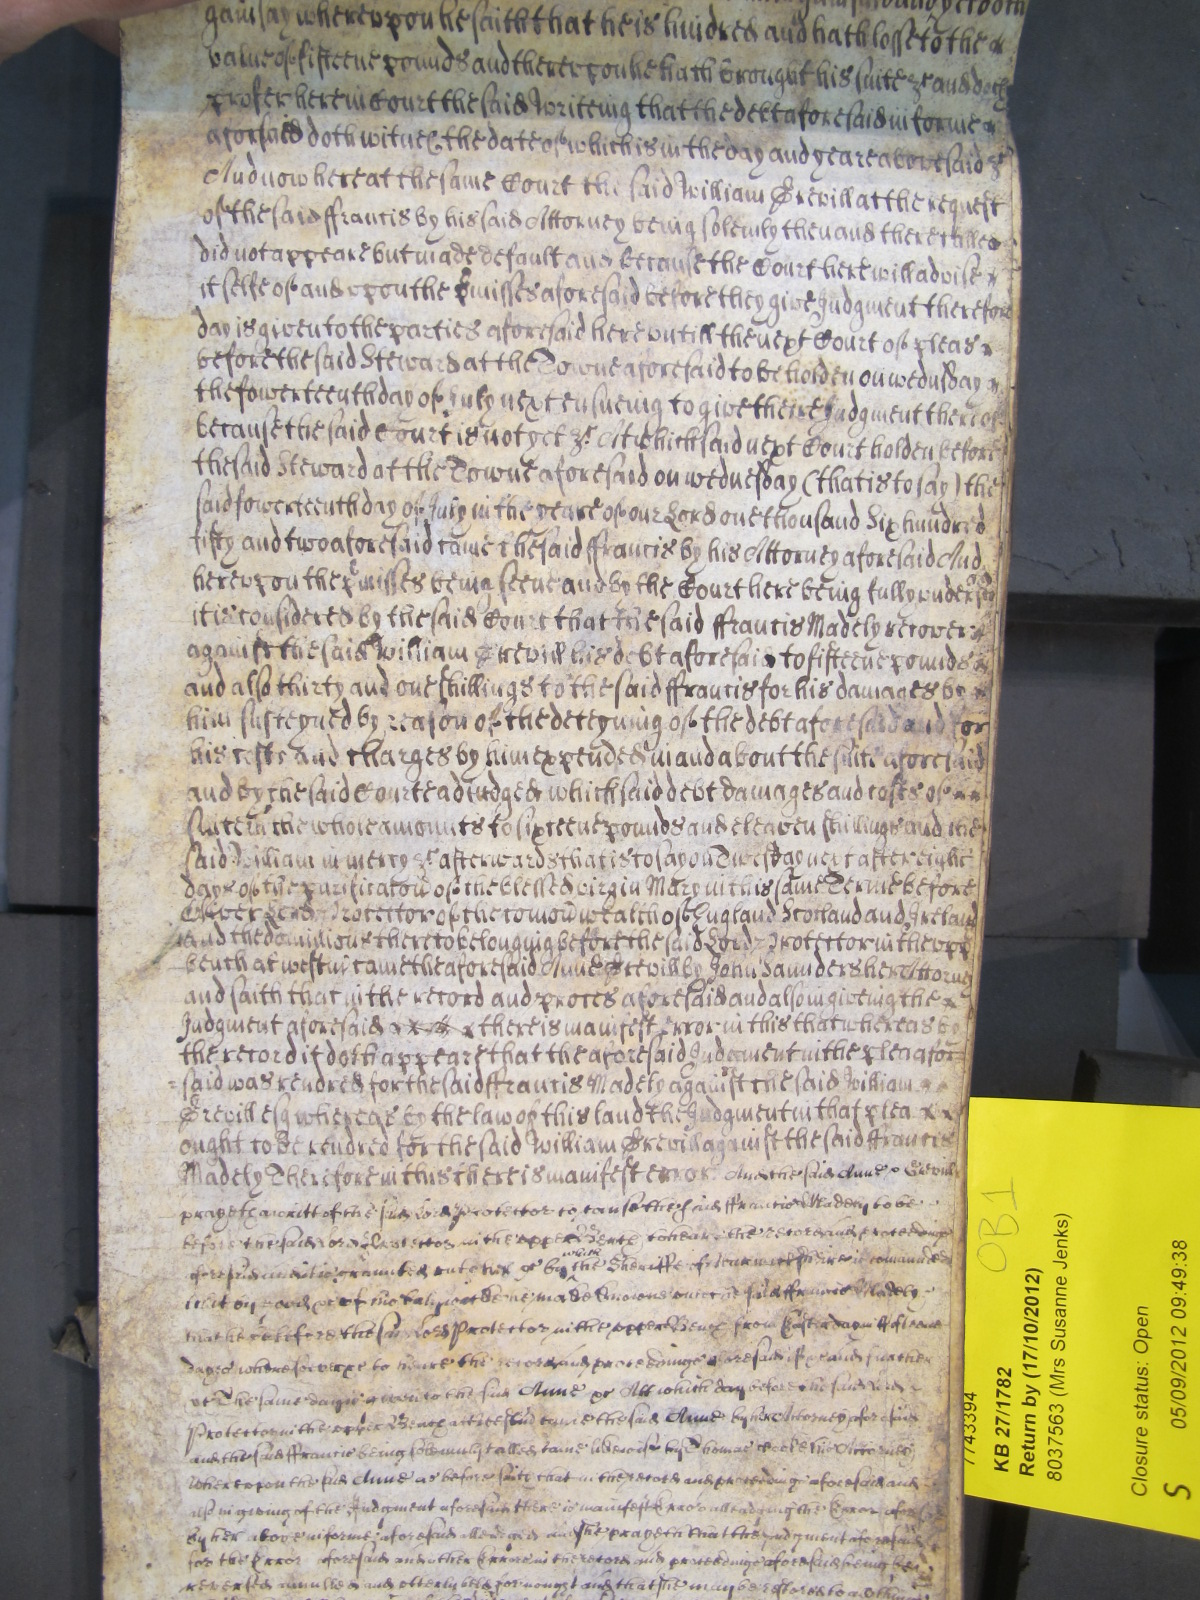 gainsay whereupon he saith that he is hindred and hath losse to the
value of fifteene pounds and thereupon he hath brought his suite &c and doth
profer here in Court the said Writeing that the debt aforesaid in forme
aforsaid doth witnes the date of which is in the day and yeare abovesaid &c
And now here at the same Court the said William Grevill at the request
of the said ffrancis by his said Attorney being solemly then and there called
did not appeare but made default and because the Court here will advise
it selfe of and upon the pmisses aforesaid before they give Judgment therefore
day is given to the parties aforesaid here untill the next Court of pleas
before the said Steward at the Towne aforesaid to be holden on wednsday
the fowerteenth day of July next ensueing to give theire Judgment thereof
because the said Court is not yet &c At which said next Court holden before
the said Steward at the Towne aforesaid on wednesday (that is to say) the
said fowerteenth day of July in the yeare of our Lord one thousand Six hundred
fifty and two aforesaid came the said ffrancis by his Attorney aforesaid And
hereupon the pmisses being seene and by the Court here being fully understood
it is considered by the said Court that the said ffrancis Madely recover
against the said William Grevill his debt aforesaid to fifteene pounds
and also thirty and one shillings to the said ffrancis for his damages by
him susteyned by reason of the deteyning of the debt aforesaid and for
his costs and charges by him expended in and about the suite aforesaid
and by the said Courte adiudged which said debt damages and costs of
suite in the whole amounts to sixteene pounds and eleaven shillings and the
said William in mercy &c afterwards that is to say on Twesday next after eight
dayes of the purificacon of the blessed virgin Mary in this same Terme before
Oliver Lord Protector of the comonwealth of England Scotland and Ireland
and the dominions thereto belonging before the said Lord Protector in the upp
bench at westmr came the aforesaid Anne Grevill by John Saunders her Attorney
and saith that in the record and proces aforesaid and also in giveing the
Judgment aforesaid there is manifest error in this that whereas by
the record it doth appeare that the aforesaid Judgment in the plea afore
said was rendred for the said ffrancis Madely against the said William
Grevill esq whereas by the law of this land the Judgment in that plea
ought to be rendred for the said William Grevill against the said ffrancis
Madely Therefore in this there is manifest error And the said Anne Grevill
prayeth a writt of the said Lord Protector to cause the said ffrancis Madely to be
before the said Lord Protector in the upper Bench to heare the record and proceedings
aforesaid and it is graunted unto her &c by which the Sheriffe of is comanded
that by good &c of his bailiwicke he make knowne unto the said ffrancis Madely
that he be before the said Lord Protector in the upper Bench from Easter day in fifteene
dayes wheresoever &c to heare the record and proceedings aforesaid if &c and further
&c The same day is given to the said Anne &c Att which day before the said Lord
Protector in the upper Bench att came the said Anne by her Attorney aforesaid
and the said ffrancis being solemnly called came likewise by Thomas his Attorney
Whereupon the said Anne as before saith that in the record and proceedings aforesaid and
also in giveing of the Judgment aforesaid there is manifest Error alleadging the Error aforesaid
by her above in forme aforesaid alleadged and she prayeth that the Judgment aforesaid
for the Error aforesaid and other Errors in the record and proceedings aforesaid being
reversed annulled and utterly held for nought and that she may be restored to all things
OB1
7743394
KB 27/1782
Return by (17/10/2012)
8037563 (Mrs Susanne Jenks)
Closure status: Open
05/09/2012 09:49:38
S